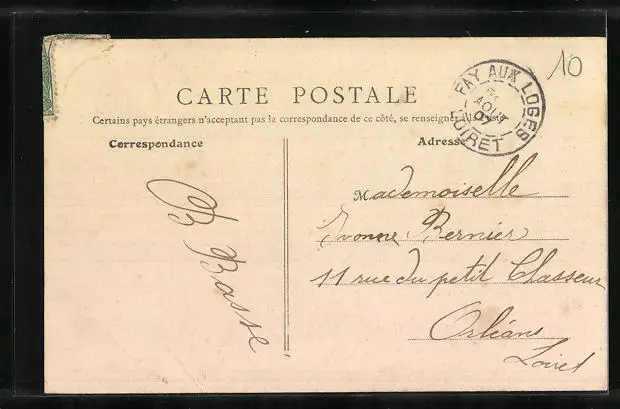 10
FAY AUX LOGES
AOUT
07
LOIRET
CARTE POSTALE
Certains pays étrangers n'acceptant pas la correspondance de ce côté, se renseigner à la Poste
Correspondance
Adresse
Mademoiselle
Yvonne Bernier
11 rue du petit Chasseur
Orléans
Loiret
B Basse